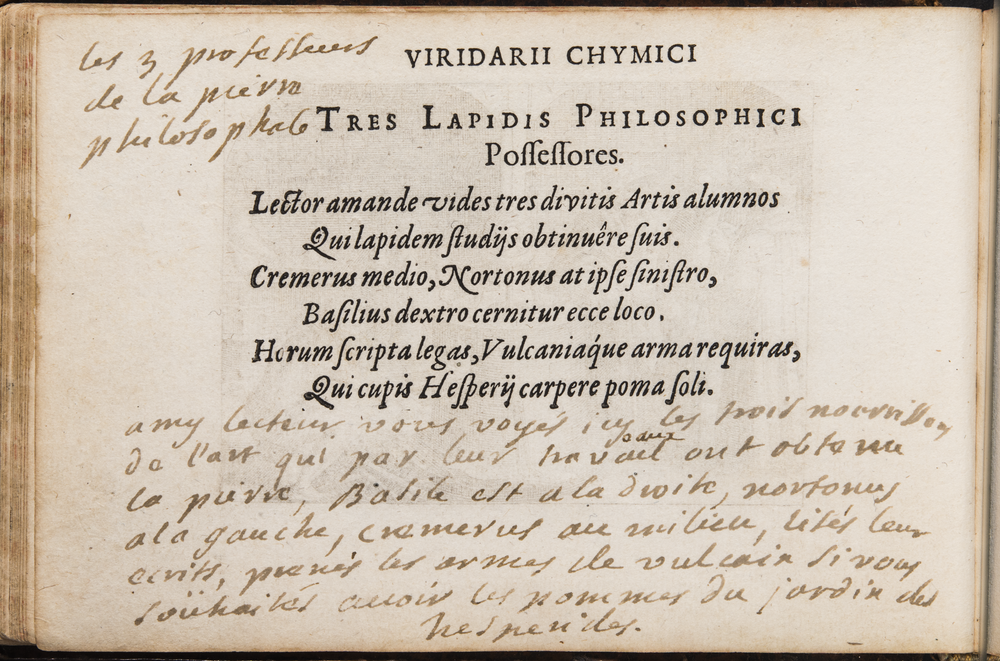 les 3 professeurs
de la pierre
philosophale
VIRIDARII CHYMICI
TRES LAPIDIS PHILOSOPHICI
Poſſeſſores.
Lector amande vides tres divitis Artis alumnos
Qui lapidem ſtudijs obtinuêre ſuis.
Cremerus medio, Nortonus at ipſe ſiniſtro,
Baſilius dextro cernitur ecce loco.
Horum ſcripta legas, Vulcaniáque arma requiras,
Qui cupis Heſperij carpere poma ſoli.
amy lecteur vous voyés icy les trois nourrissons
de l'art qui par leur travaux ont obtenu
la pierre, Basile est a la droite, nortonus
a la gauche, cremerus au milieu, lisés leur
ecrits, prenés les armes de vulcain si vous
soühaités avoir les pommes du jardin des
hesperides.